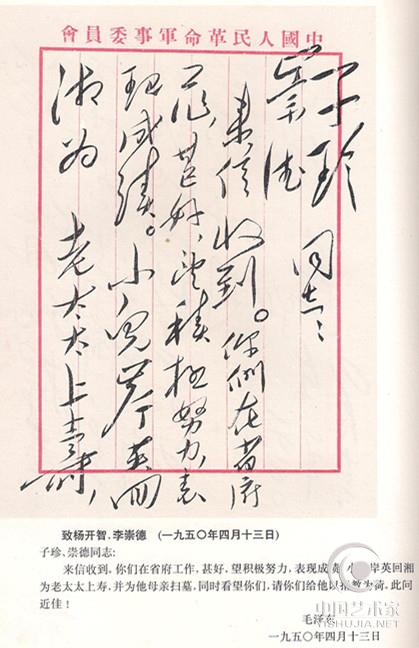 中國人民革命軍事委員會
子珍
崇德 同志:
来信收到。你們在省府
工作,甚好,望積極努力,表
現成績。小兒岸英回
湘为 老太太上壽,
致杨开智、李崇德 (一九五○年四月十三日)
子珍、崇德同志:
来信收到,你们在省府工作,甚好,望积极努力,表现成绩,小儿岸英回湘
为老太太上寿,并为他母亲扫墓,同时看望你们,请你们给他以指教为荷,此问
近佳!
毛泽东
一九五○年四月十三日
中国艺术家
YISHUJIE.COM